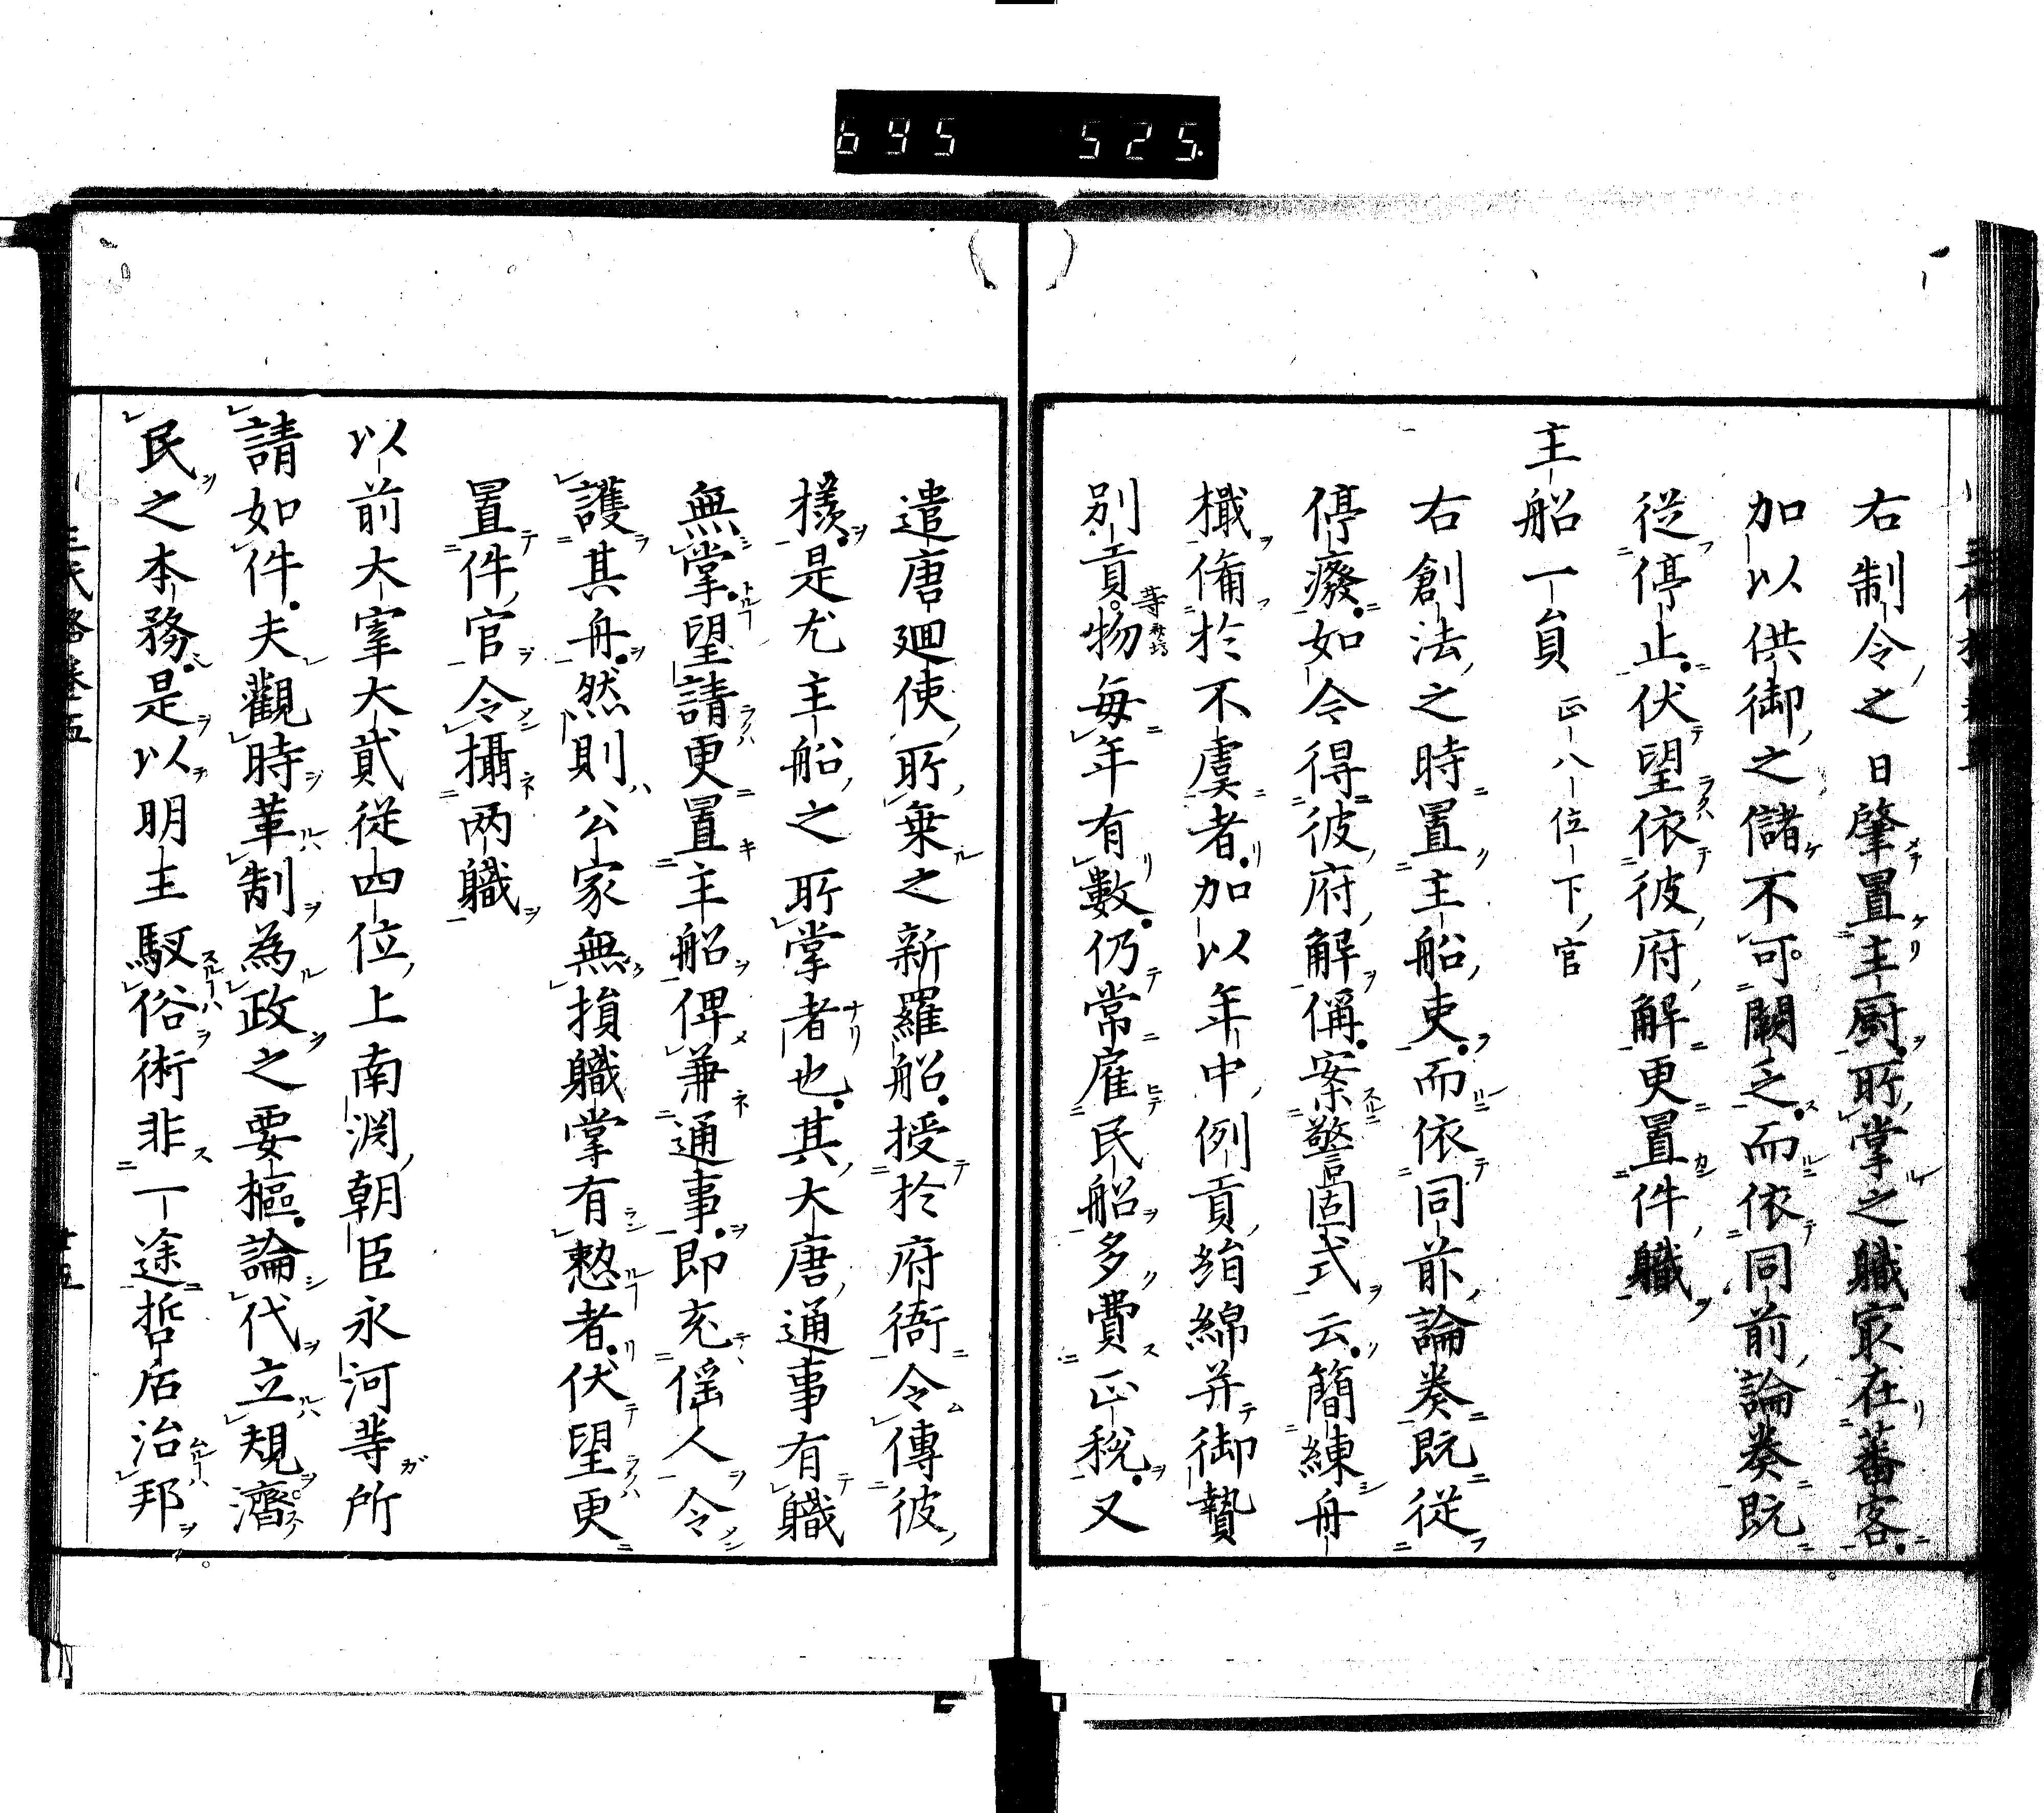 695 525
右制令之日肇置主厨所掌之職冣在蕃客
加以供御之儲不可闕之而依同前論奏既
従停止伏望依彼府解更置件職
主船一員 正八位下官
右創法之時置主船吏而依同前論奏既従
停癈如今得彼府解偁案警固式云簡練舟
檝備於不虞者加以年中例貢絹綿并御贄
別貢物毎年有數仍常雇民船多費正税又
遣唐廻使所乗之新羅船授於府衙令傳彼
様是尤主船之所掌者也其大唐通事有職
無掌望請更置主船俾兼通事即充傜人令
護其舟然則公家無損職掌有懃者伏望更
置件官令攝两職
以前大宰大貳従四位上南渕朝臣永河等所
請如件夫觀時革制為政之要樞論代立規濟
民之本務是以明主馭俗術非一途哲后治邦